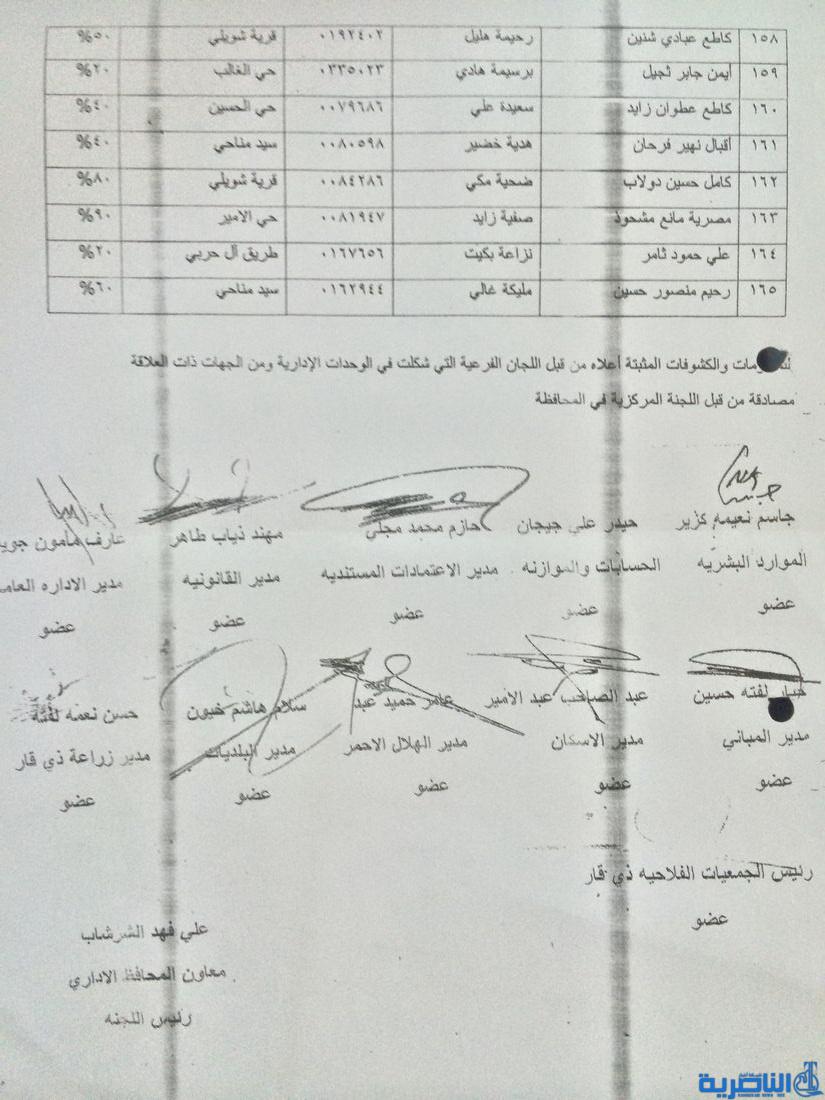 ١٥٨ كاطع عبادي شنين رحيمة هليل ٠١٩٢٤٠٢ قرية شويلي ٥٠%
١٥٩ أيمن جابر ثجيل برسيمة هادي ٠٣٣٥٠٢٣ حي الغالب ٢٠%
١٦٠ كاطع عطوان زايد سعيدة علي ٠٠٧٩٦٨٦ حي الحسين ٤٠%
١٦١ أقبال نهير فرحان هدية خضير ٠٠٨٠٥٩٨ سيد مناحي ٤٠%
١٦٢ كامل حسين دولاب ضحية مكي ٠٠٨٤٢٨٦ قرية شويلي ٨٠%
١٦٣ مصرية مانع مشحوذ صفية زايد ٠٠٨١٩٤٧ حي الامير ٩٠%
١٦٤ علي حمود ثامر نزاعة بكيت ٠١٦٧٦٥٦ طريق آل حربي ٢٠%
١٦٥ رحيم منصور حسين مليكة غالي ٠١٦٢٩٤٤ سيد مناحي ٦٠%
والكشوفات المثبتة أعلاه من قبل اللجان الفرعية التي شكلت في الوحدات الإدارية ومن الجهات ذات العلاقة
مصادقة من قبل اللجنة المركزية في المحافظة
جاسم نعيمه كزير حيدر علي جيجان حازم محمد مجلي مهند ذياب طاهر عارف مامون
الموارد البشريه الحسابات والموازنه مدير الاعتمادات المستنديه مدير القانونيه مدير الاداره
عضو عضو عضو عضو عضو
لفته حسين عبد الصاحب عبد الامير عامر حميد عبد سلام هاشم خيون حسن نعمه لفته
مدير المباني مدير الاسكان مدير الهلال الاحمر مدير البلديات مدير زراعة ذي قار
عضو عضو عضو عضو عضو
رئيس الجمعيات الفلاحيه ذي قار
عضو
علي فهد الشرشاب
معاون المحافظ الاداري
رئيس اللجنه
الناصرية